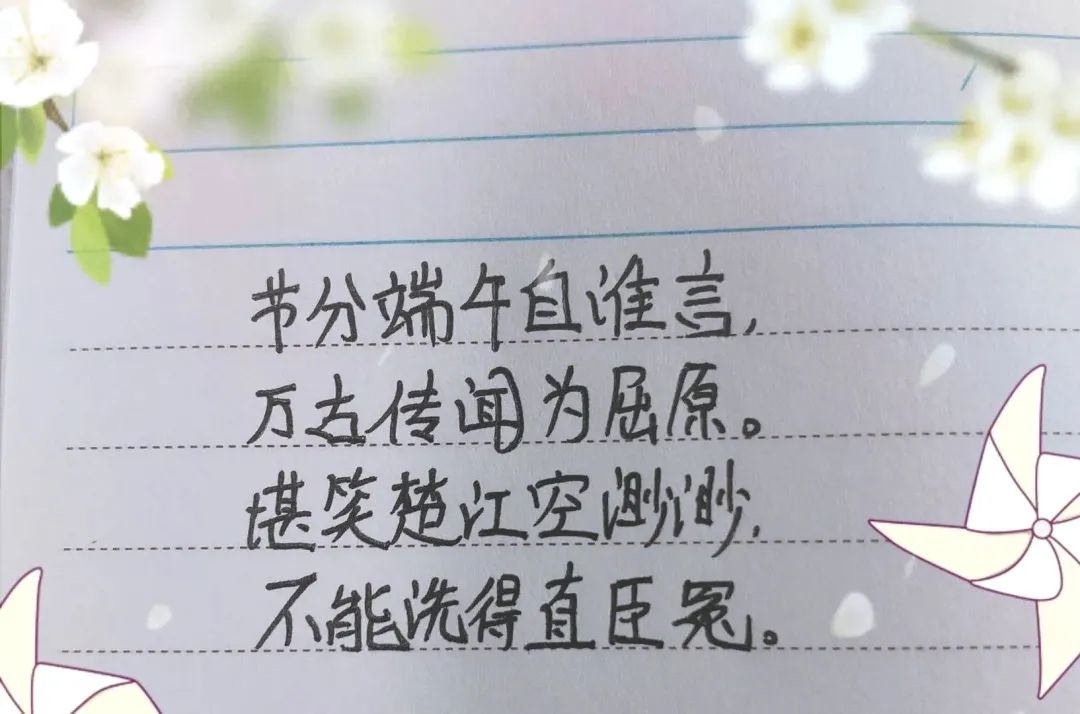 节分端午自谁言,
万古传闻为屈原。
堪笑楚江空渺渺,
不能洗得直臣冤。